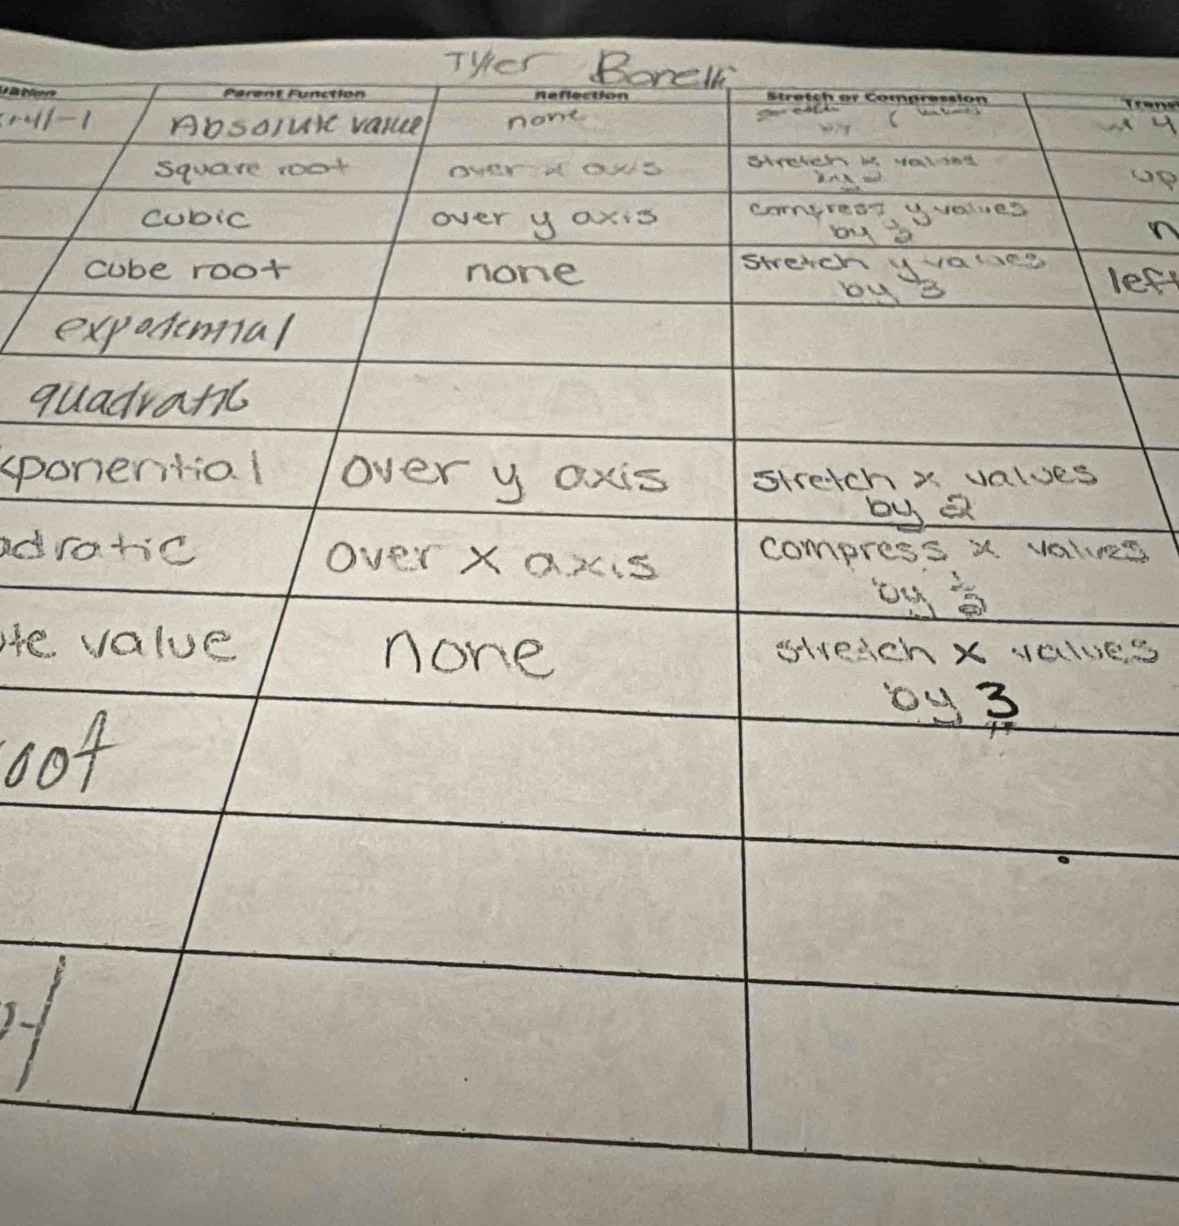 Tyler Bonelli
Parent Function Reflection Stretch or Compression
Absolute value none
square root over x axis stretch x values up
by 2
cubic over y axis compress y values
by 2
cube root none stretch y values left
by 3
quadratic
ponential over y axis stretch x values
by 2
adratic over x axis compress x values
by
te value none stretch x values
by 3
oot